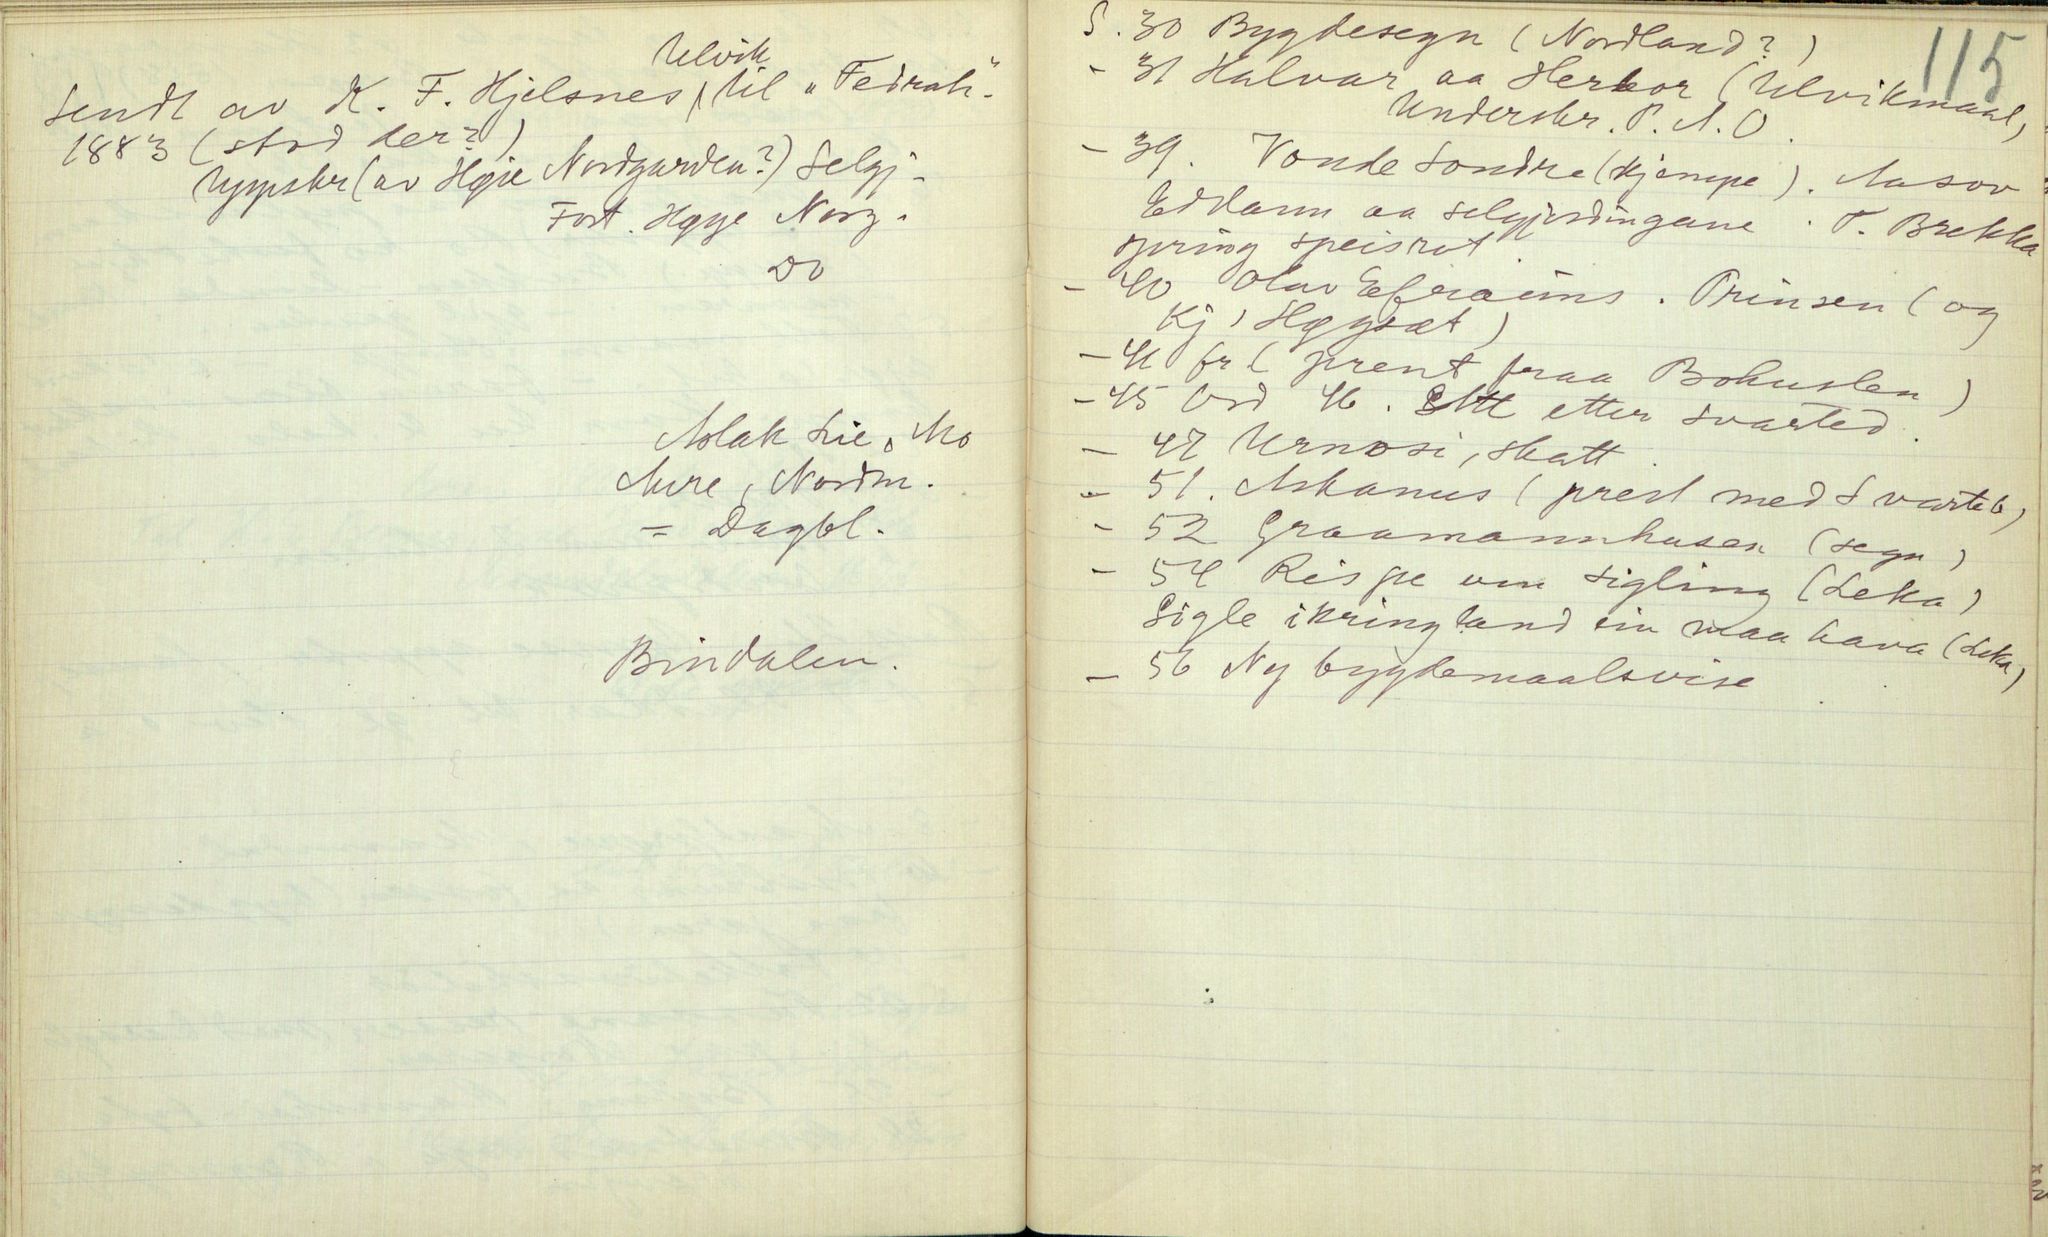 Ulvik
Sendt av K. F. Hjelsnes, til "Fedrah."
1883 (stod der?)
Uppskr (av Høje Nordgarden?) Selgj-
Fort. Høge Norg.
Do
Aslak Lie, Mo
Aure, Nordm.
= Dagbl.
Bindalen.
115
S. 30 Bygdesegn (Nordland?)
- 31 Halvar aa Herbor (Ulvikmaal,
Underskr. P. A. O.
- 39. Vonde Sondre (Kjempe). Aasov
Eddann aa selgjordingane. T. Brekka
spring speisrot.
- 40 Olav Efraims. Prinsen (og
Kj, Høgsæt)
- 41 fr (prent fraa Bohuslen)
- 45 Ord 46. Ætt etter Svarted.
- 47 Urnosi, skatt.
- 51. Askanus (prest med Svarteb)
- 52 Graamannhusen (segn)
- 54 Reispe um sigling (Leka)
Sigle ikring land ein maa hava (Leka)
- 56 Ny bygdemaalsvise